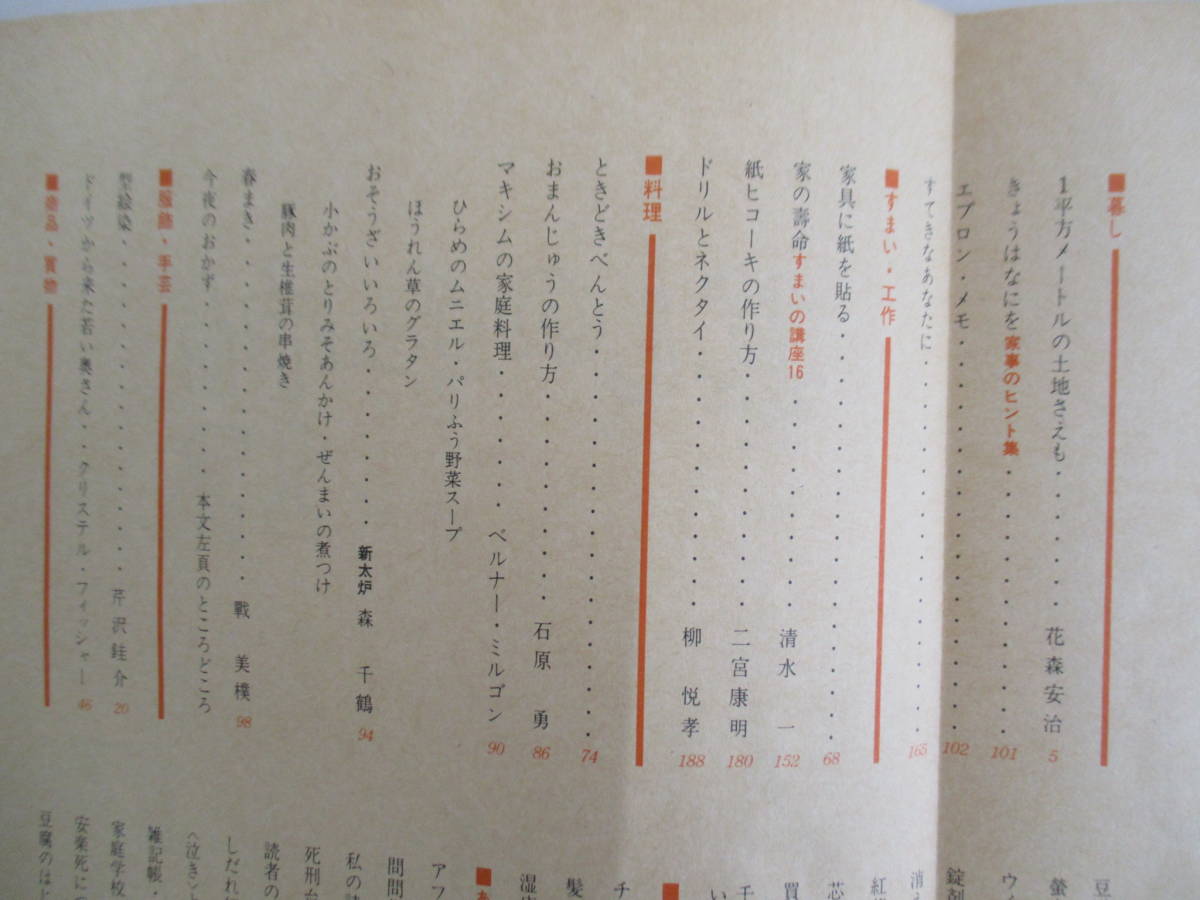 ■暮し
1平方メートルの土地さえも・・・・・・花森安治 5
きょうはなにを 家事のヒント集・・・・・・・・・・・101
エプロン・メモ・・・・・・・・・・・・・・・・・102
すてきなあなたに・・・・・・・・・・・・・・・・165
■すまい・工作
家具に紙を貼る・・・・・・・・・・・・・・・・・68
家の壽命 すまいの講座16・・・・・・・清水 一 152
紙ヒコーキの作り方・・・・・・・・・二宮康明 180
ドリルとネクタイ・・・・・・・・・・柳 悦孝 188
■料理
ときどきべんとう・・・・・・・・・・・・・・・・74
おまんじゅうの作り方・・・・・・・・石原 勇 86
マキシムの家庭料理・・・・・ベルナー・ミルゴン 90
ひらめのムニエル・パリふう野菜スープ
ほうれん草のグラタン
おそうざいいろいろ・・・・・・新太炉 森 千鶴 94
小かぶのとりみそあんかけ・ぜんまいの煮つけ
豚肉と生椎茸の串焼き
春まき・・・・・・・・・・・・・戰 美樸 98
今夜のおかず・・・・・・・本文左頁のところどころ
■服飾・手芸
型絵染・・・・・・・・・・・・芹沢銈介 20
ドイツから来た若い奥さん・・クリステル・フィッシャー 46
■商品・買物
豆
螢
ウ
錠剤
消え
紅
芯
買
千
い
■
チ
髪
湿
■あ
アフ
間間
私の
死刑台
読者の
しだれ
〈泣き〉
雑記帳・
家庭学校
安楽死に
豆腐のはな